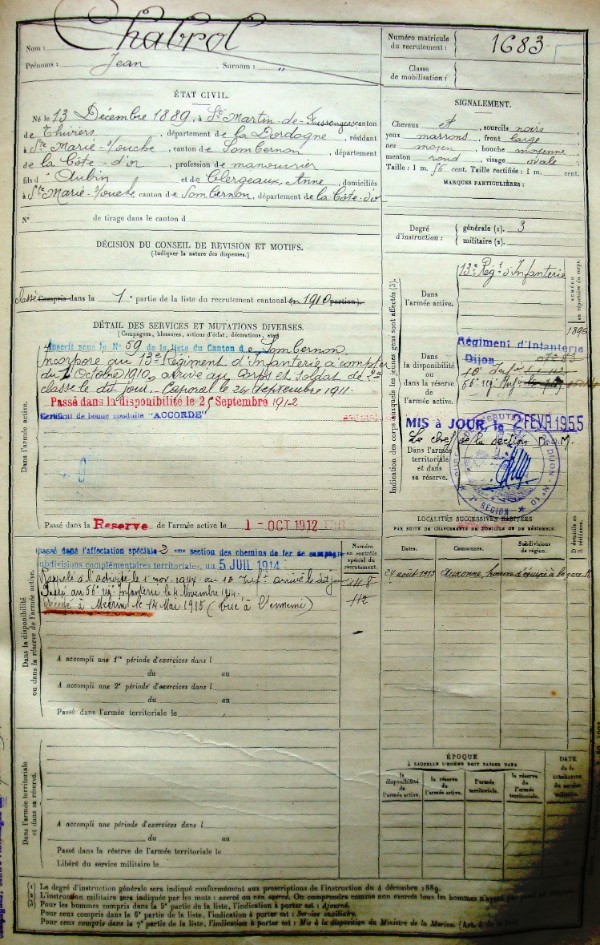 Nom : Chabrol
Prénoms : Jean Surnom : "
Numéro matricule du recrutement : 1683
Classe de mobilisation :
ÉTAT CIVIL.
Né le 13 Décembre 1889, à St Martin-de-Fressenges, canton
de Thiviers, département de la Dordogne, résidant
à Ste Marie-s/Ouche, canton de Sombernon, département
de la Côte-d'or, profession de manouvrier
fils d'Aubin et de Clergeaux Anne, domiciliés
à Ste Marie-s/Ouche, canton de Sombernon, département de la Côte-d'or
N° de tirage dans le canton d
SIGNALEMENT.
Cheveux et sourcils noirs
yeux marrons, front large
nez moyen, bouche moyenne
menton rond, visage ovale
Taille : 1 m. 56 cent. Taille rectifiée : 1 m. cent.
MARQUES PARTICULIÈRES :
Degré d'instruction : générale (1). 3
militaire (2).
DÉCISION DU CONSEIL DE RÉVISION ET MOTIFS.
(Indiquer la nature des dispenses.)
Classé Compris dans la 1e partie de la liste du recrutement cantonal en 1910
DÉTAIL DES SERVICES ET MUTATIONS DIVERSES.
(Campagnes, blessures, actions d'éclat, décorations, etc.)
Inscrit sous le N° 59 de la liste du Canton de Sombernon
Incorporé au 13e Régiment d'Infanterie à compter
du 1er Octobre 1910, arrivé au Corps et soldat de 2e
classe le dit jour. Caporal le 24 Septembre 1911.
Passé dans la disponibilité le 25 Septembre 1912
Certificat de bonne conduite "ACCORDÉ"
Dans l'armée active.
Passé dans la Réserve de l'armée active le 1 - OCT 1912
Indication des corps auxquels les jeunes gens sont affectés (3).
Dans l'armée active. 13e Régt d'Infanterie
Dans la disponibilité ou dans la réserve de l'armée active.
Régiment d'Infanterie
Dijon
MIS à JOUR, le 2 FEVR. 1955
Le chef de la section
Dans l'armée territoriale et dans sa réserve.
LOCALITÉS SUCCESSIVES HABITÉES
PAR SUITE DE CHANGEMENTS DE DOMICILE OU DE RÉSIDENCE.
Dates. Communes. Subdivisions de région.
Auxonne, homme d'équipe à la gare
passé dans l'affectation spéciale 2eme section des chemins de fer de campagne
subdivisions complémentaires territoriales, un 5 JUIL 1914
Numéro au contrôle spécial du recrutement.
Rappelé à l'activité le 1er nov. 1914 au 10e Inf. arrivé le dit jour
Passé au 56e rég. Infanterie le 4 novembre 1914.
Décédé à Mécrin le 14 Mai 1915 (tué à l'ennemi)
112
Dans la disponibilité ou dans la réserve de l'armée active.
A accompli une 1re période d'exercices dans l
du au
A accompli une 2e période d'exercices dans l
du au
Passé dans l'armée territoriale le
ÉPOQUE
À LAQUELLE L'HOMME DOIT PASSER DANS
la disponibilité de l'armée active. la réserve de l'armée active. l'armée territoriale. la réserve de l'armée territoriale.
DATE de la libération du service militaire.
Dans l'armée territoriale et dans sa réserve.
A accompli une période d'exercices dans l
du au
Passé dans la réserve de l'armée territoriale le
Libéré du service militaire le
(1) Le degré d'instruction générale sera indiqué conformément aux prescriptions de l'instruction du 4 décembre 1889.
(2) L'instruction militaire sera indiquée par les mots : exercé ou non exercé. On comprendra comme non exercés tous les hommes
(3) Pour les hommes compris dans la 5e partie de la liste, l'indication à porter est : Ajourné.
Pour ceux compris dans la 6e partie de la liste, l'indication à porter est : Service auxiliaire.
Pour ceux compris dans la 7e partie de la liste, l'indication à porter est : Mis à la disposition du Ministre de la Marine